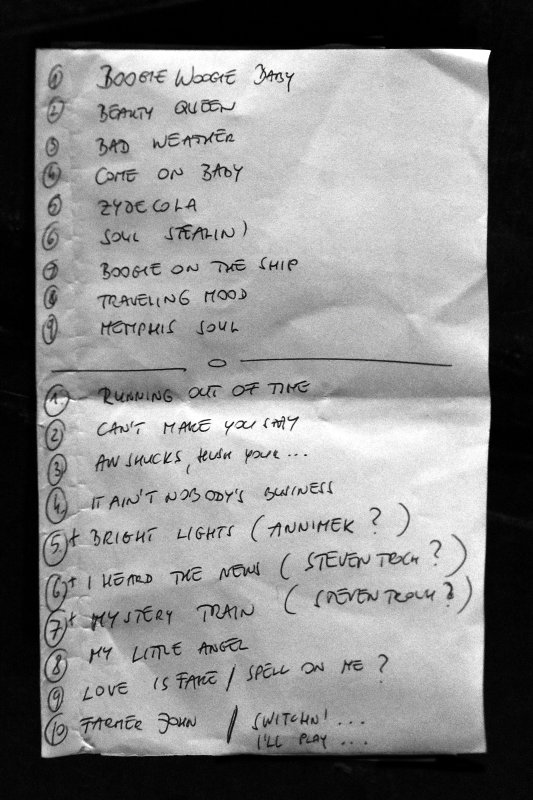 1 BOOGIE WOOGIE BABY
2 BEAUTY QUEEN
3 BAD WEATHER
4 COME ON BABY
5 ZYDECOLA
6 SOUL STEALIN'
7 BOOGIE ON THE SHIP
8 TRAVELING MOOD
9 MEMPHIS SOUL
1 RUNNING OUT OF TIME
2 CAN'T MAKE YOU STAY
3 AW SHUCKS, HUSH YOUR...
4 IT AIN'T NOBODY'S BUSINESS
5 + BRIGHT LIGHTS (ANNIMEK ?)
6 + I HEARD THE NEWS (STEVEN TROCH ?)
7 + MYSTERY TRAIN (STEVEN TROCH ?)
8 MY LITTLE ANGEL
9 LOVE IS FAKE / SPELL ON ME ?
10 FARMER JOHN / SWITCHN'...
I'LL PLAY ...